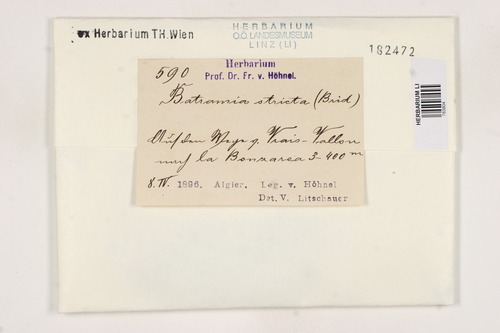 ex Herbarium TH. Wien
HERBARIUM
O.Ö. LANDESMUSEUM
LINZ (LI)
192472
HERBARIUM LI
590
Herbarium
Prof. Dr. Fr. v. Höhnel.
Batramia stricta (Brid)
Auf dem Wege v. Frais-Vallon
nach la Bouzarea 3-400 m
8. IV. 1896. Algier. Leg. v. Höhnel
Det. V. Litschauer